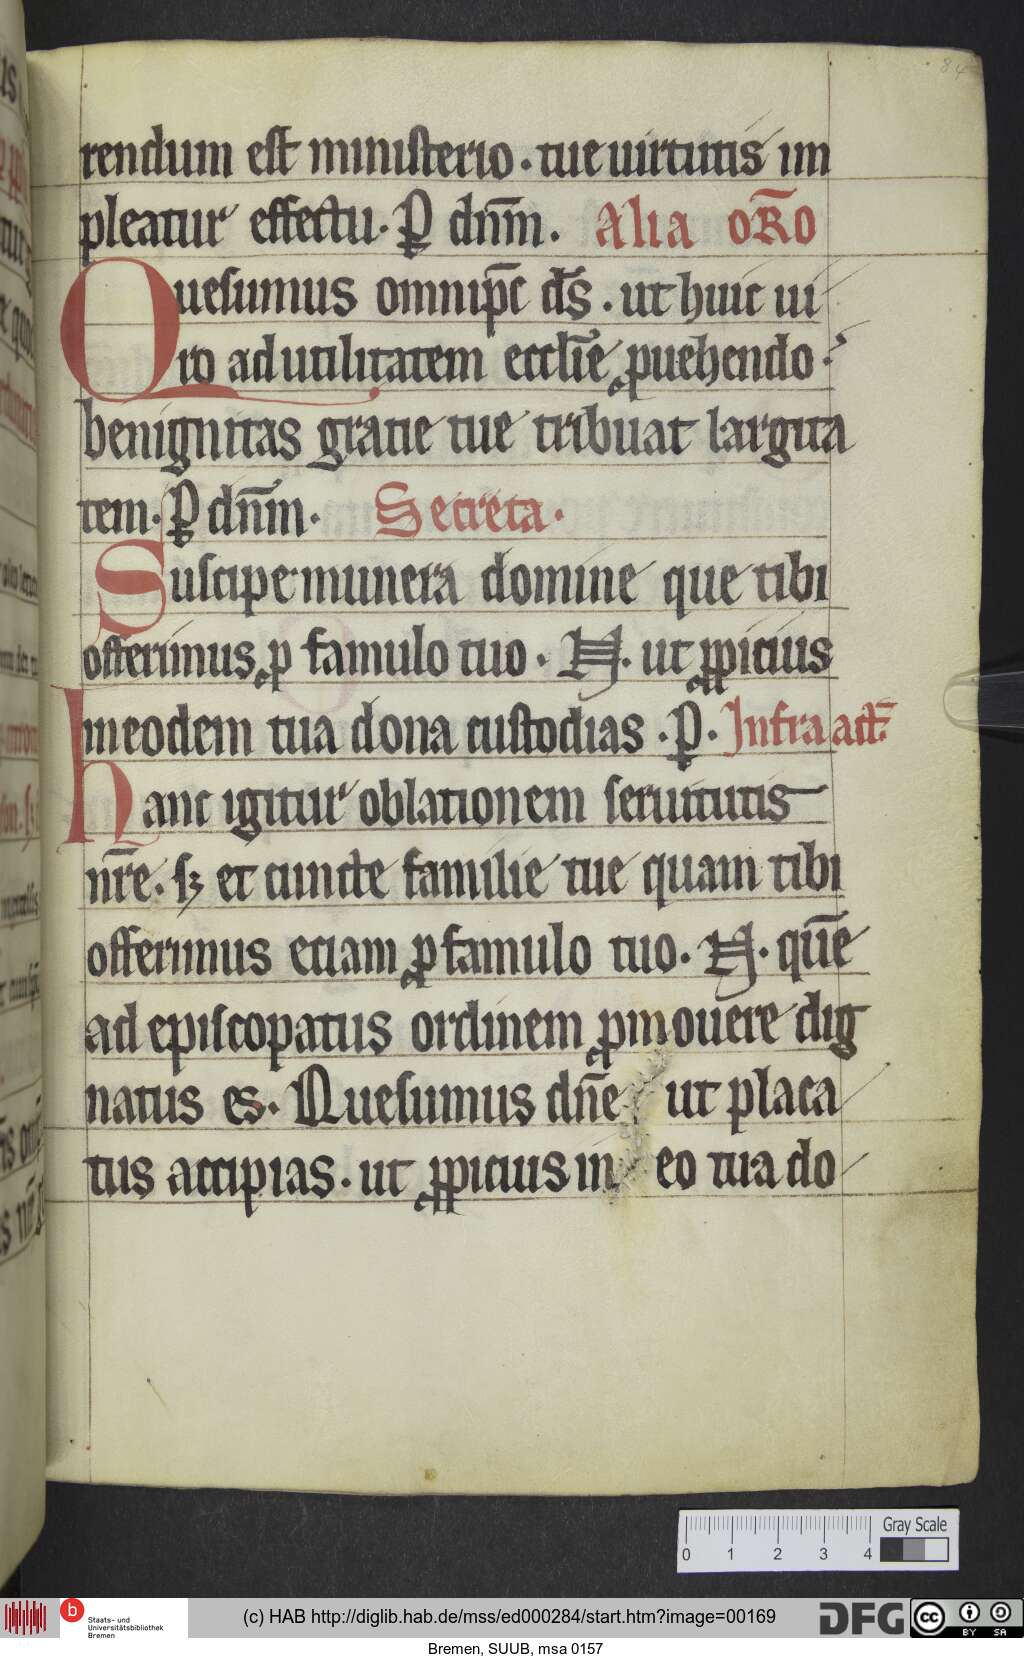 84
rendum est ministerio. tue uirtutis im
pleatur effectu. P̲ dnm̄. Alia or̄o
Quesumus omnip̄c d̄s. ut huic ui
ro ad utilitatem eccl̄ie ꝓuehendo.
benignitas gratie tue tribuat largita
tem. P̲ dnm̄. Secreta.
Suscipe munera domine que tibi
offerimus ꝓ famulo tuo. N. ut ꝓpicius
in eodem tua dona custodias. P̲. Infra act̄.
hanc igitur oblationem seruitutis
nr̄e. sꝫ et cuncte familie tue quam tibi
offerimus etiam ꝓ famulo tuo. N. quē
ad episcopatus ordinem ꝓmouere dig
natus es. Quesumus dn̄e ut placa
tus accipias. ut ꝓpicius in eo tua do
Gray Scale
0 1 2 3 4
b Staats- und
Universitätsbibliothek
Bremen
(c) HAB http://diglib.hab.de/mss/ed000284/start.htm?image=00169
DFG
cc BY SA
Bremen, SUUB, msa 0157